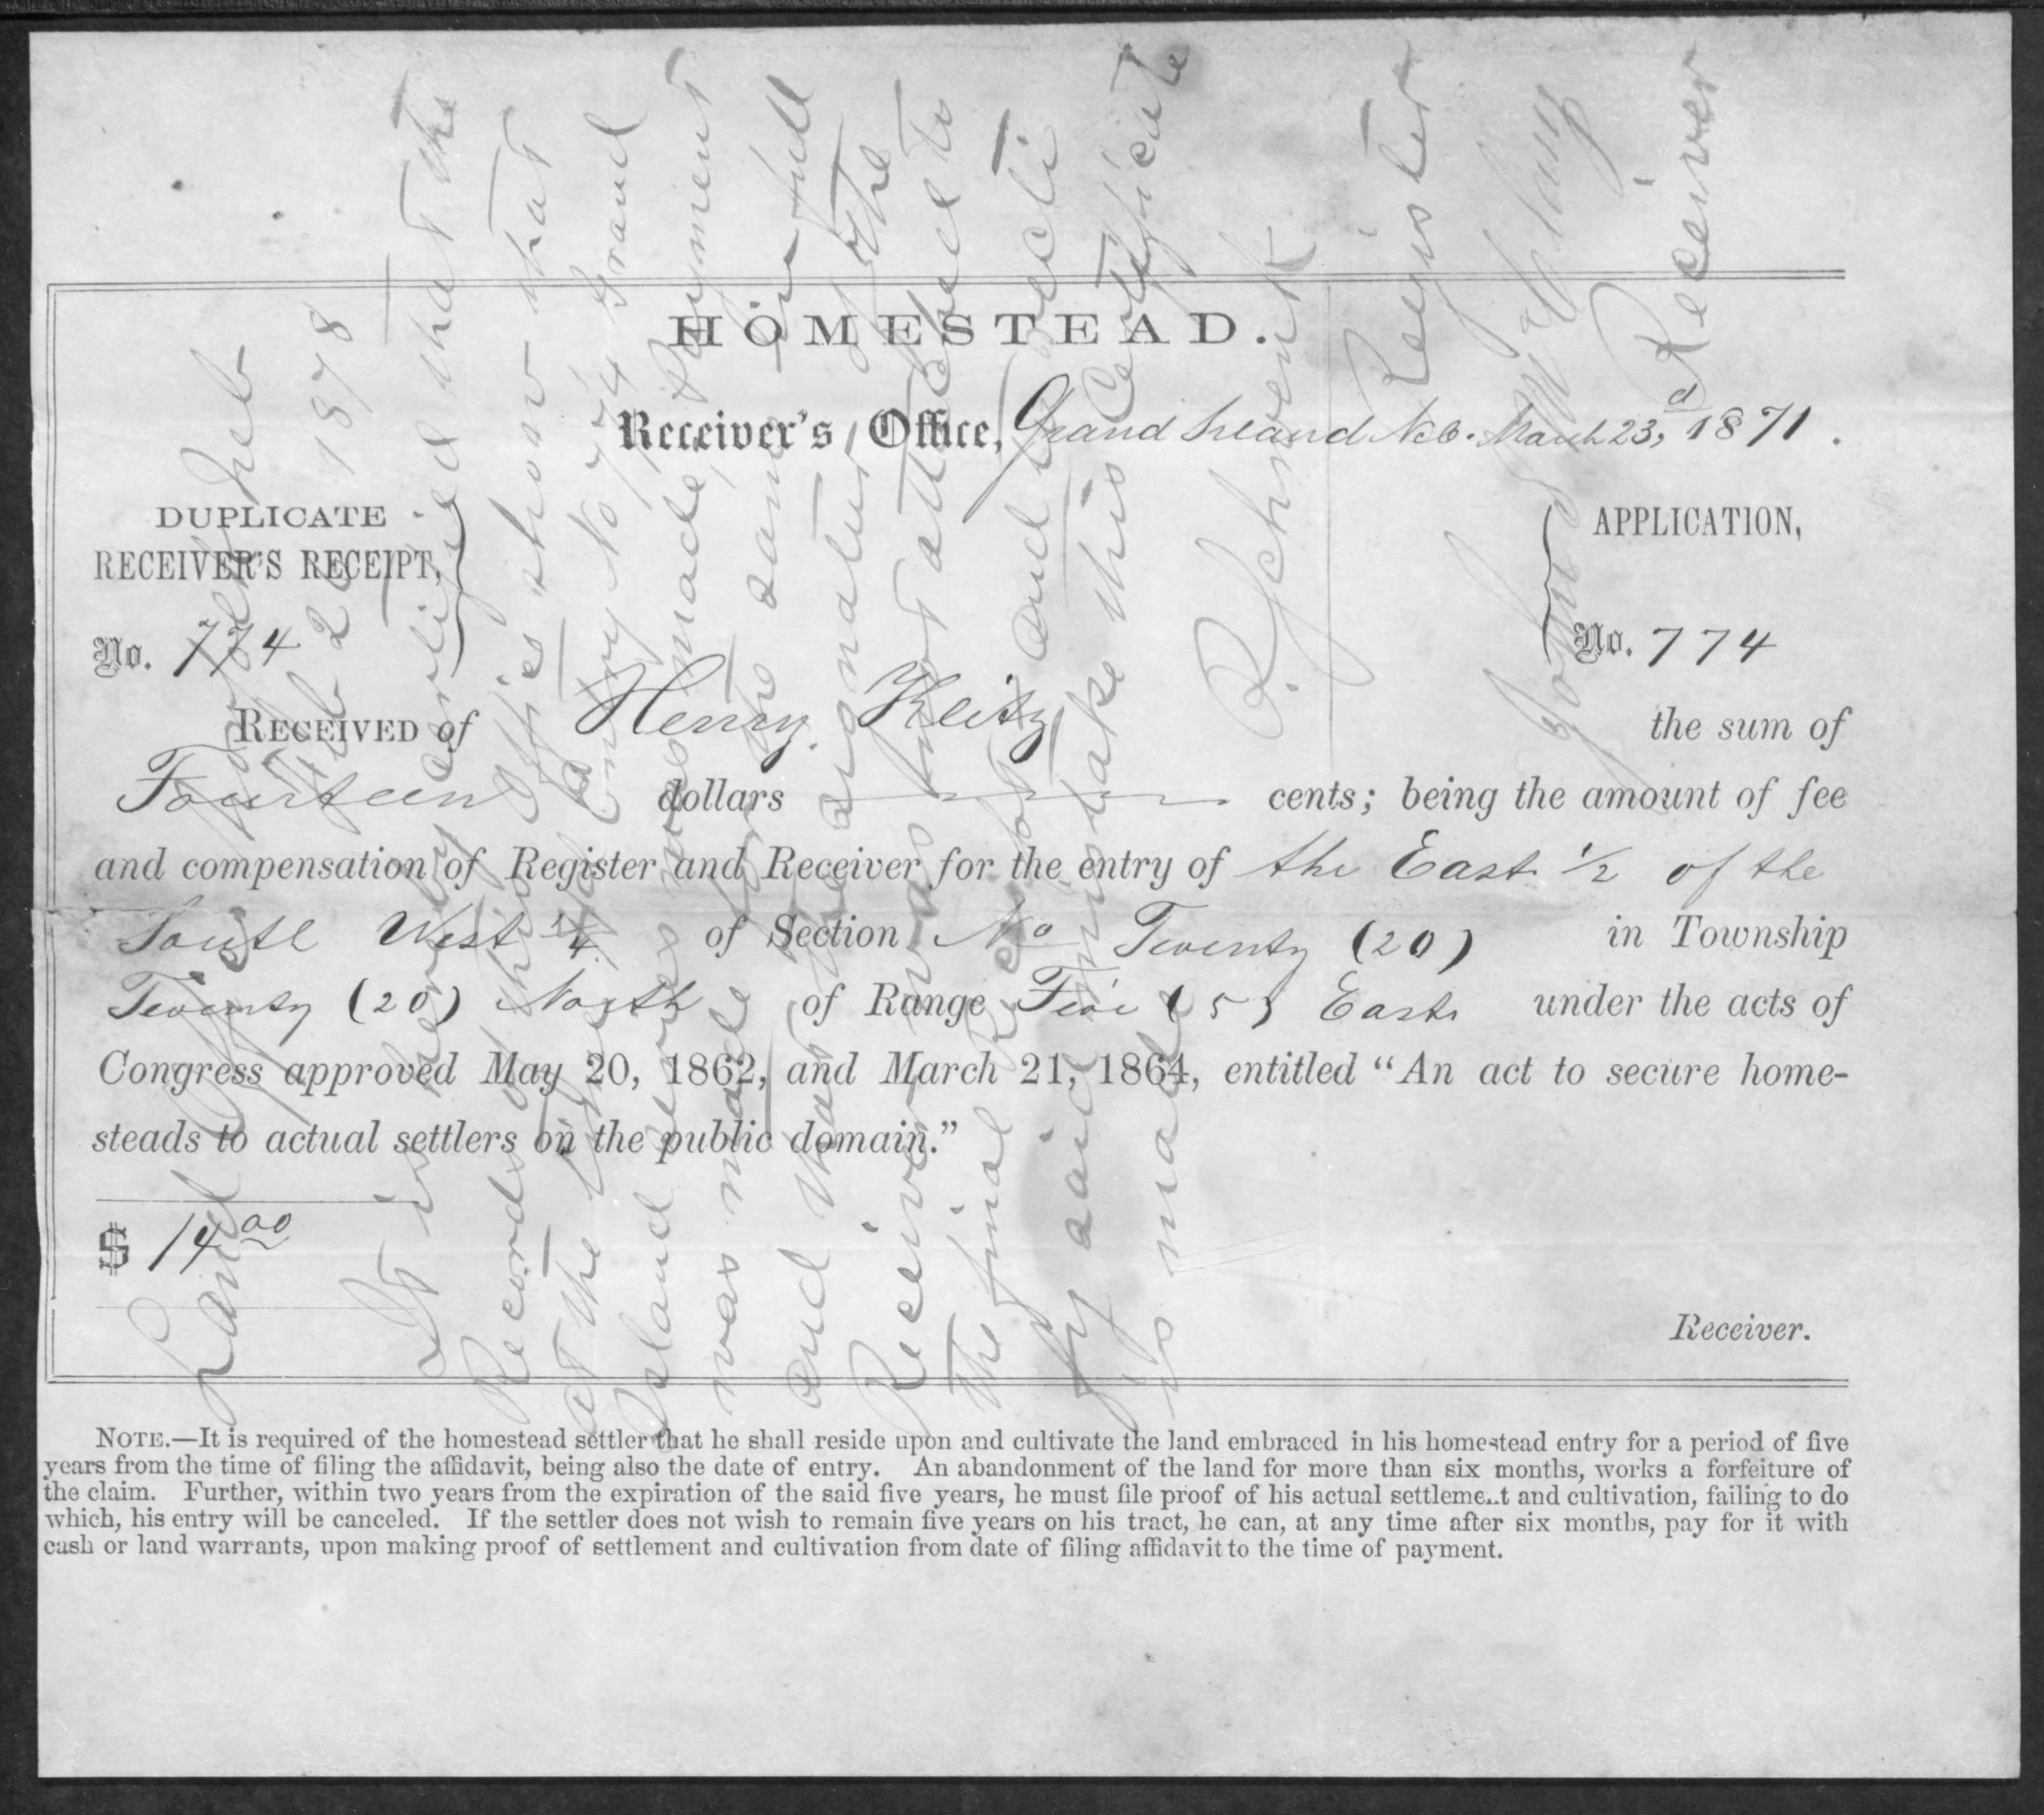 HOMESTEAD.
Receiver's Office, Grand Island Neb. March 23,d 1871.
DUPLICATE
RECEIVER'S RECEIPT,
No. 774
APPLICATION,
No. 774
RECEIVED of Henry Kleitz the sum of
Fourteen dollars cents; being the amount of fee
and compensation of Register and Receiver for the entry of the East ½ of the
South West ¼ of Section No Twenty (20) in Township
Twenty (20) North of Range Five (5) East under the acts of
Congress approved May 20, 1862, and March 21, 1864, entitled “An act to secure home-
steads to actual settlers on the public domain.”
$ 14 00
Receiver.
NOTE.—It is required of the homestead settler that he shall reside upon and cultivate the land embraced in his homestead entry for a period of five
years from the time of filing the affidavit, being also the date of entry. An abandonment of the land for more than six months, works a forfeiture of
the claim. Further, within two years from the expiration of the said five years, he must file proof of his actual settlement and cultivation, failing to do
which, his entry will be canceled. If the settler does not wish to remain five years on his tract, he can, at any time after six months, pay for it with
cash or land warrants, upon making proof of settlement and cultivation from date of filing affidavit to the time of payment.
Land Office Norfolk Neb
Feb 20 1878
It is hereby certified that the
Records of this Office show that
at the time Entry No 774 Grand
Island series was made, Payment
was made for the same in full
and that the signature of the
Receiver was not attached to
the final Receipt and to rectify
said mistake this Certificate
is made
B. Schwenk
Register
John S McClary
Receiver